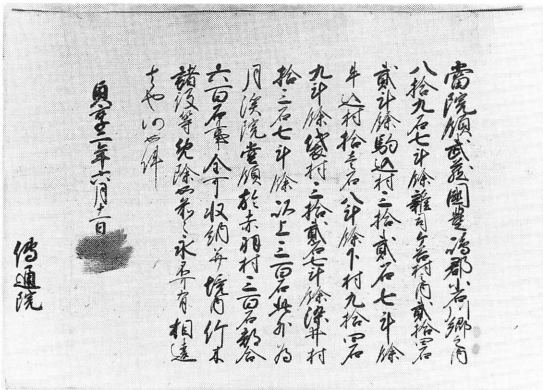 當院領武蔵國豊嶋郡小石川郷之内
八拾九石七斗餘雑司ヶ谷村之内貳拾四石
貳斗餘駒込村三拾貳石七斗餘
牛込村拾三石八斗餘下村九拾四石
九斗餘袋村三拾貳石七斗餘染井村
拾三石七斗餘以上三百石此外為
月渓院堂領於赤羽村三百石都合
六百石事全可収納并境内竹木
諸役等免除如前々永不可有相違
者也仍如件
貞享二年六月十一日
傳通院